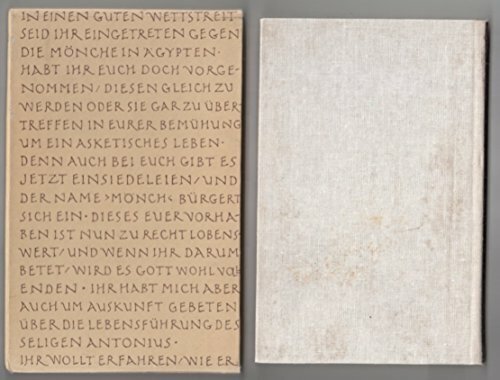 IN EINEN GUTEN WETTSTREIT
SEID IHR EINGETRETEN GEGEN
DIE MÖNCHE IN ÄGYPTEN·
HABT IHR EUCH DOCH VORGE-
NOMMEN/DIESEN GLEICH ZU
WERDEN ODER SIE GAR ZU ÜBER-
TREFFEN IN EURER BEMÜHUNG
UM EIN ASKETISCHES LEBEN·
DENN AUCH BEI EUCH GIBT ES
JETZT EINSIEDELEIEN/UND
DER NAME ›MÖNCH‹ BÜRGERT
SICH EIN· DIESES EUER VORHA-
BEN IST NUN ZU RECHT LOBENS-
WERT/UND WENN IHR DARUM
BETET/WIRD ES GOTT WOHL VOLL-
ENDEN· IHR HABT MICH ABER
AUCH UM AUSKUNFT GEBETEN
ÜBER DIE LEBENSFÜHRUNG DES
SELIGEN ANTONIUS·
IHR WOLLT ERFAHREN/WIE ER